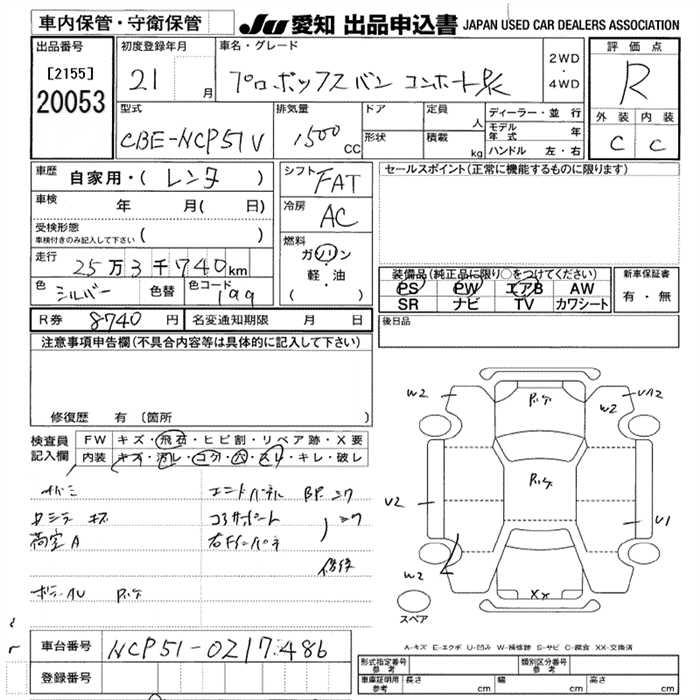 車内保管・守衛保管 JU 愛知 出品申込書 JAPAN USED CAR DEALERS ASSOCIATION
出品番号 [2155] 20053
初度登録年月 21 月
車名・グレード プロボックスバン コンホート
2WD・4WD
評価点 R
外装 内装 C C
型式 CBE-NCP51V
排気量 1500 CC
ドア 形状
定員 人 積載 kg
ディーラー・並行
モデル年式 年
ハンドル 左・右
車歴 自家用・( レンタ )
シフト FAT
セールスポイント(正常に機能するものに限ります)
車検 年 月( 日)
冷房 AC
受検形態 車検付きのみ記入して下さい ( )
走行 25万3千740km
燃料 ガソリン 軽・油 ( )
色 シルバー 色替 色コード 199
装備品(純正品に限り○をつけてください) 新車保証書
PS PW エアB AW 有・無
SR ナビ TV カワシート
R券 8740 円 名変通知期限 月 日
後日品
注意事項申告欄(不具合内容等は具体的に記入して下さい)
修復歴 有 (箇所
検査員記入欄 FW キズ・飛石・ヒビ割・リペア跡・X要
内装 キズ・汚レ・コゲ・穴・スレ・キレ・破レ
エンドパネル BP ユワ
コアサポート ユワ
荷室A 右Fインパネ
修復
W2 W2 UA2
U2 U1
W2 XX
スペア
A-キズ E-エクボ U-凹み W-補修跡 S-サビ C-腐食 XX-交換済
車台番号 NCP51-0217486
登録番号
形式指定番号 参考 類別区分番号 参考
車庫証明用 参考 長さ cm 幅 cm 高さ cm